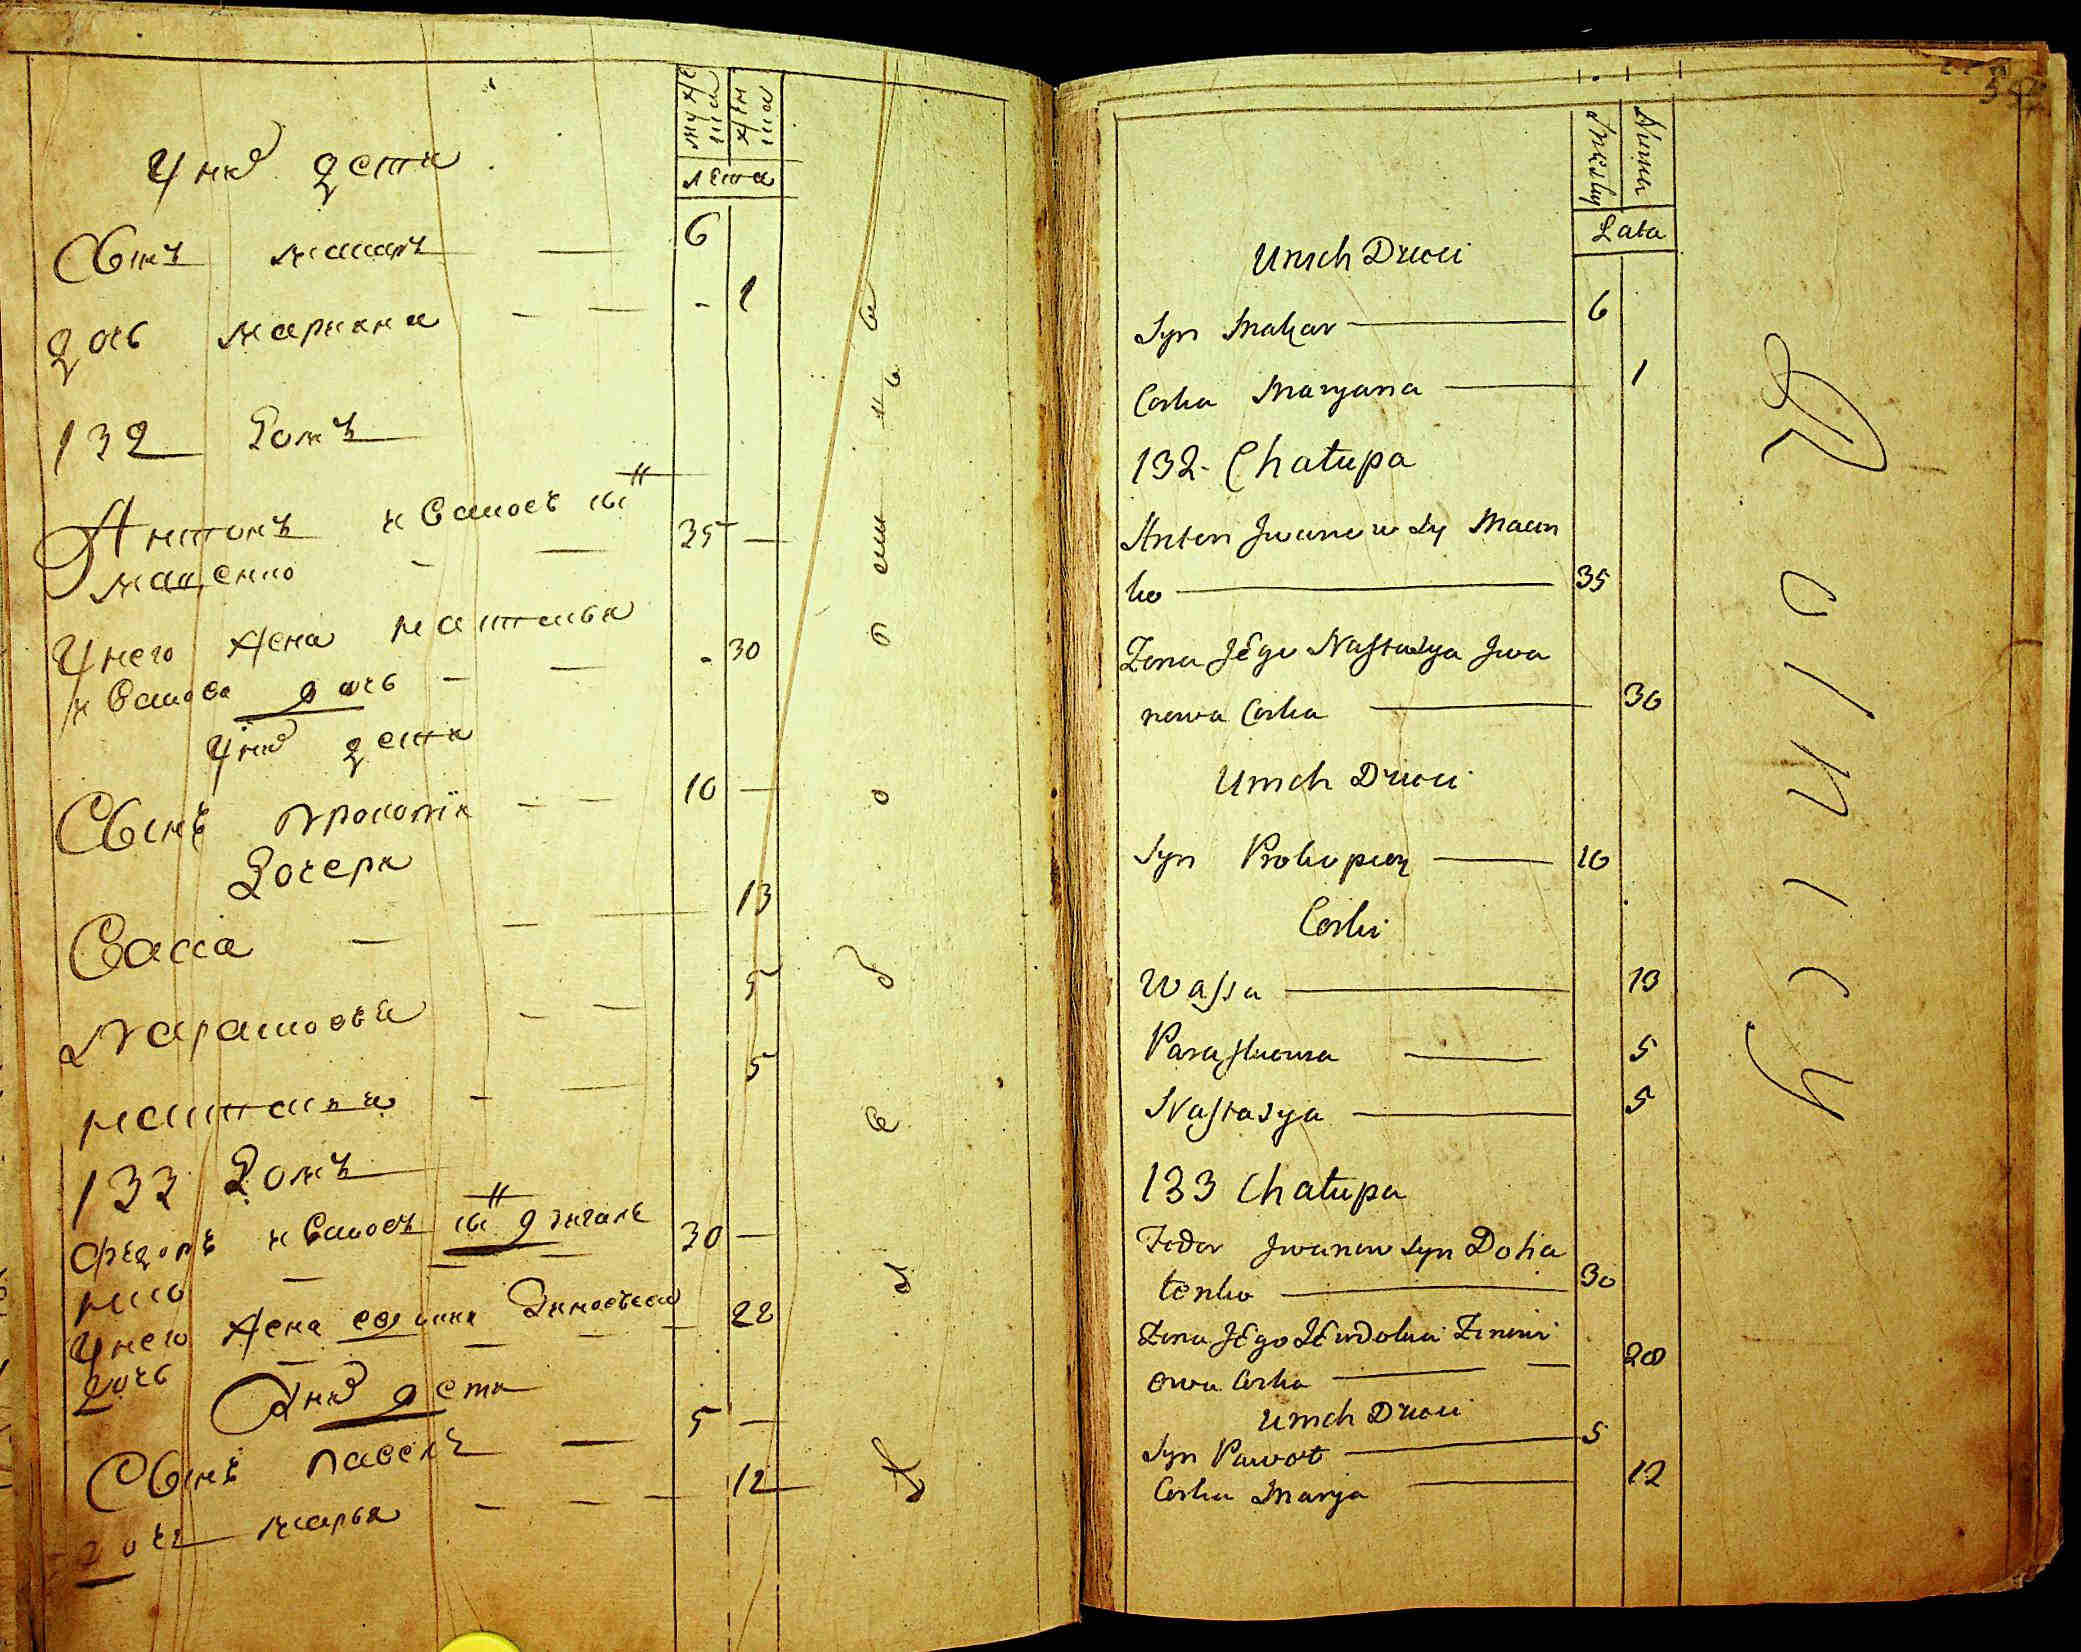 мужеска
женска
лета
У них дети
Сынъ макаръ — 6
дочь мариана - — - 1
132 Домъ
Антонъ ивановъ сынъ
мащенко - — 35 —
У него жена настасья
иванова дочь - — - 30
У них дети
Сынъ прокопий - — 10 —
Дочери
Васса — - — 13
Парасковья - — 5
настасья - — 5
133 Домъ
Федоръ ивановъ сынъ
30 —
У него жена евдокия Зиновьева 28
дочь
У них дети
Сынъ павелъ — 5 —
дочь марья - - — 12
Męsky
Lata
Unich Dzieci
Syn Makar — 6
Corka Maryana — 1
132. Chałupa
Anton Jwanow Sy Maczn
ko — 35
Zona JEgo Nastasya Jwa
nowa Corka — 30
Unich Dzieci
Syn Prokopiey — 10
Corki
Wassa — 13
Paraskowia — 5
Nastasya — 5
133 Chałupa
Fedor Jwanow Syn Doha
tenko — 30
Zona JEgo JEwdokia Zinowi
owa Corka — — 28
Unich Dzieci
Syn Paweł — 5
Corka Marya — 12
Rolnicy